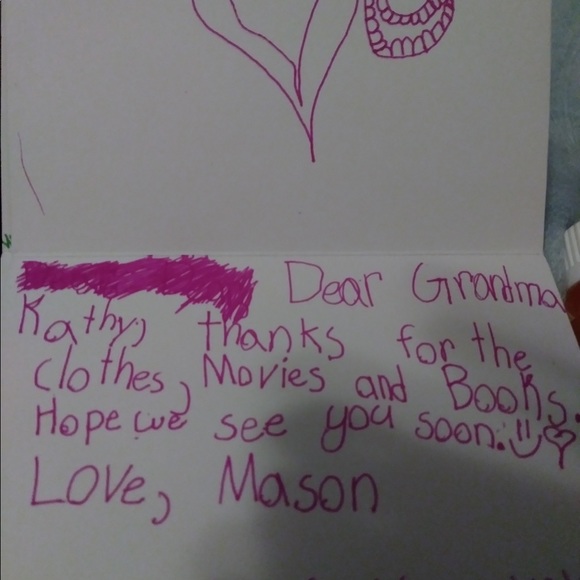 Dear Grandma
Kathy, thanks for the
clothes, Movies and Books.
Hope we see you soon.
Love, Mason